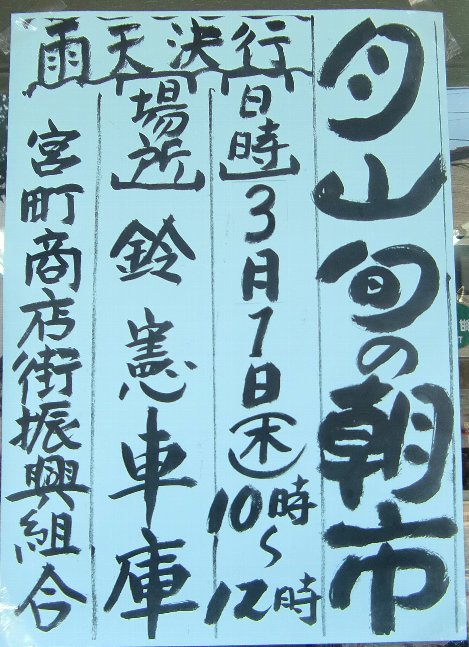 月山旬の朝市
雨天決行
【日時】3月1日(木)10時~12時
【場所】鈴憲車庫
宮町商店街振興組合